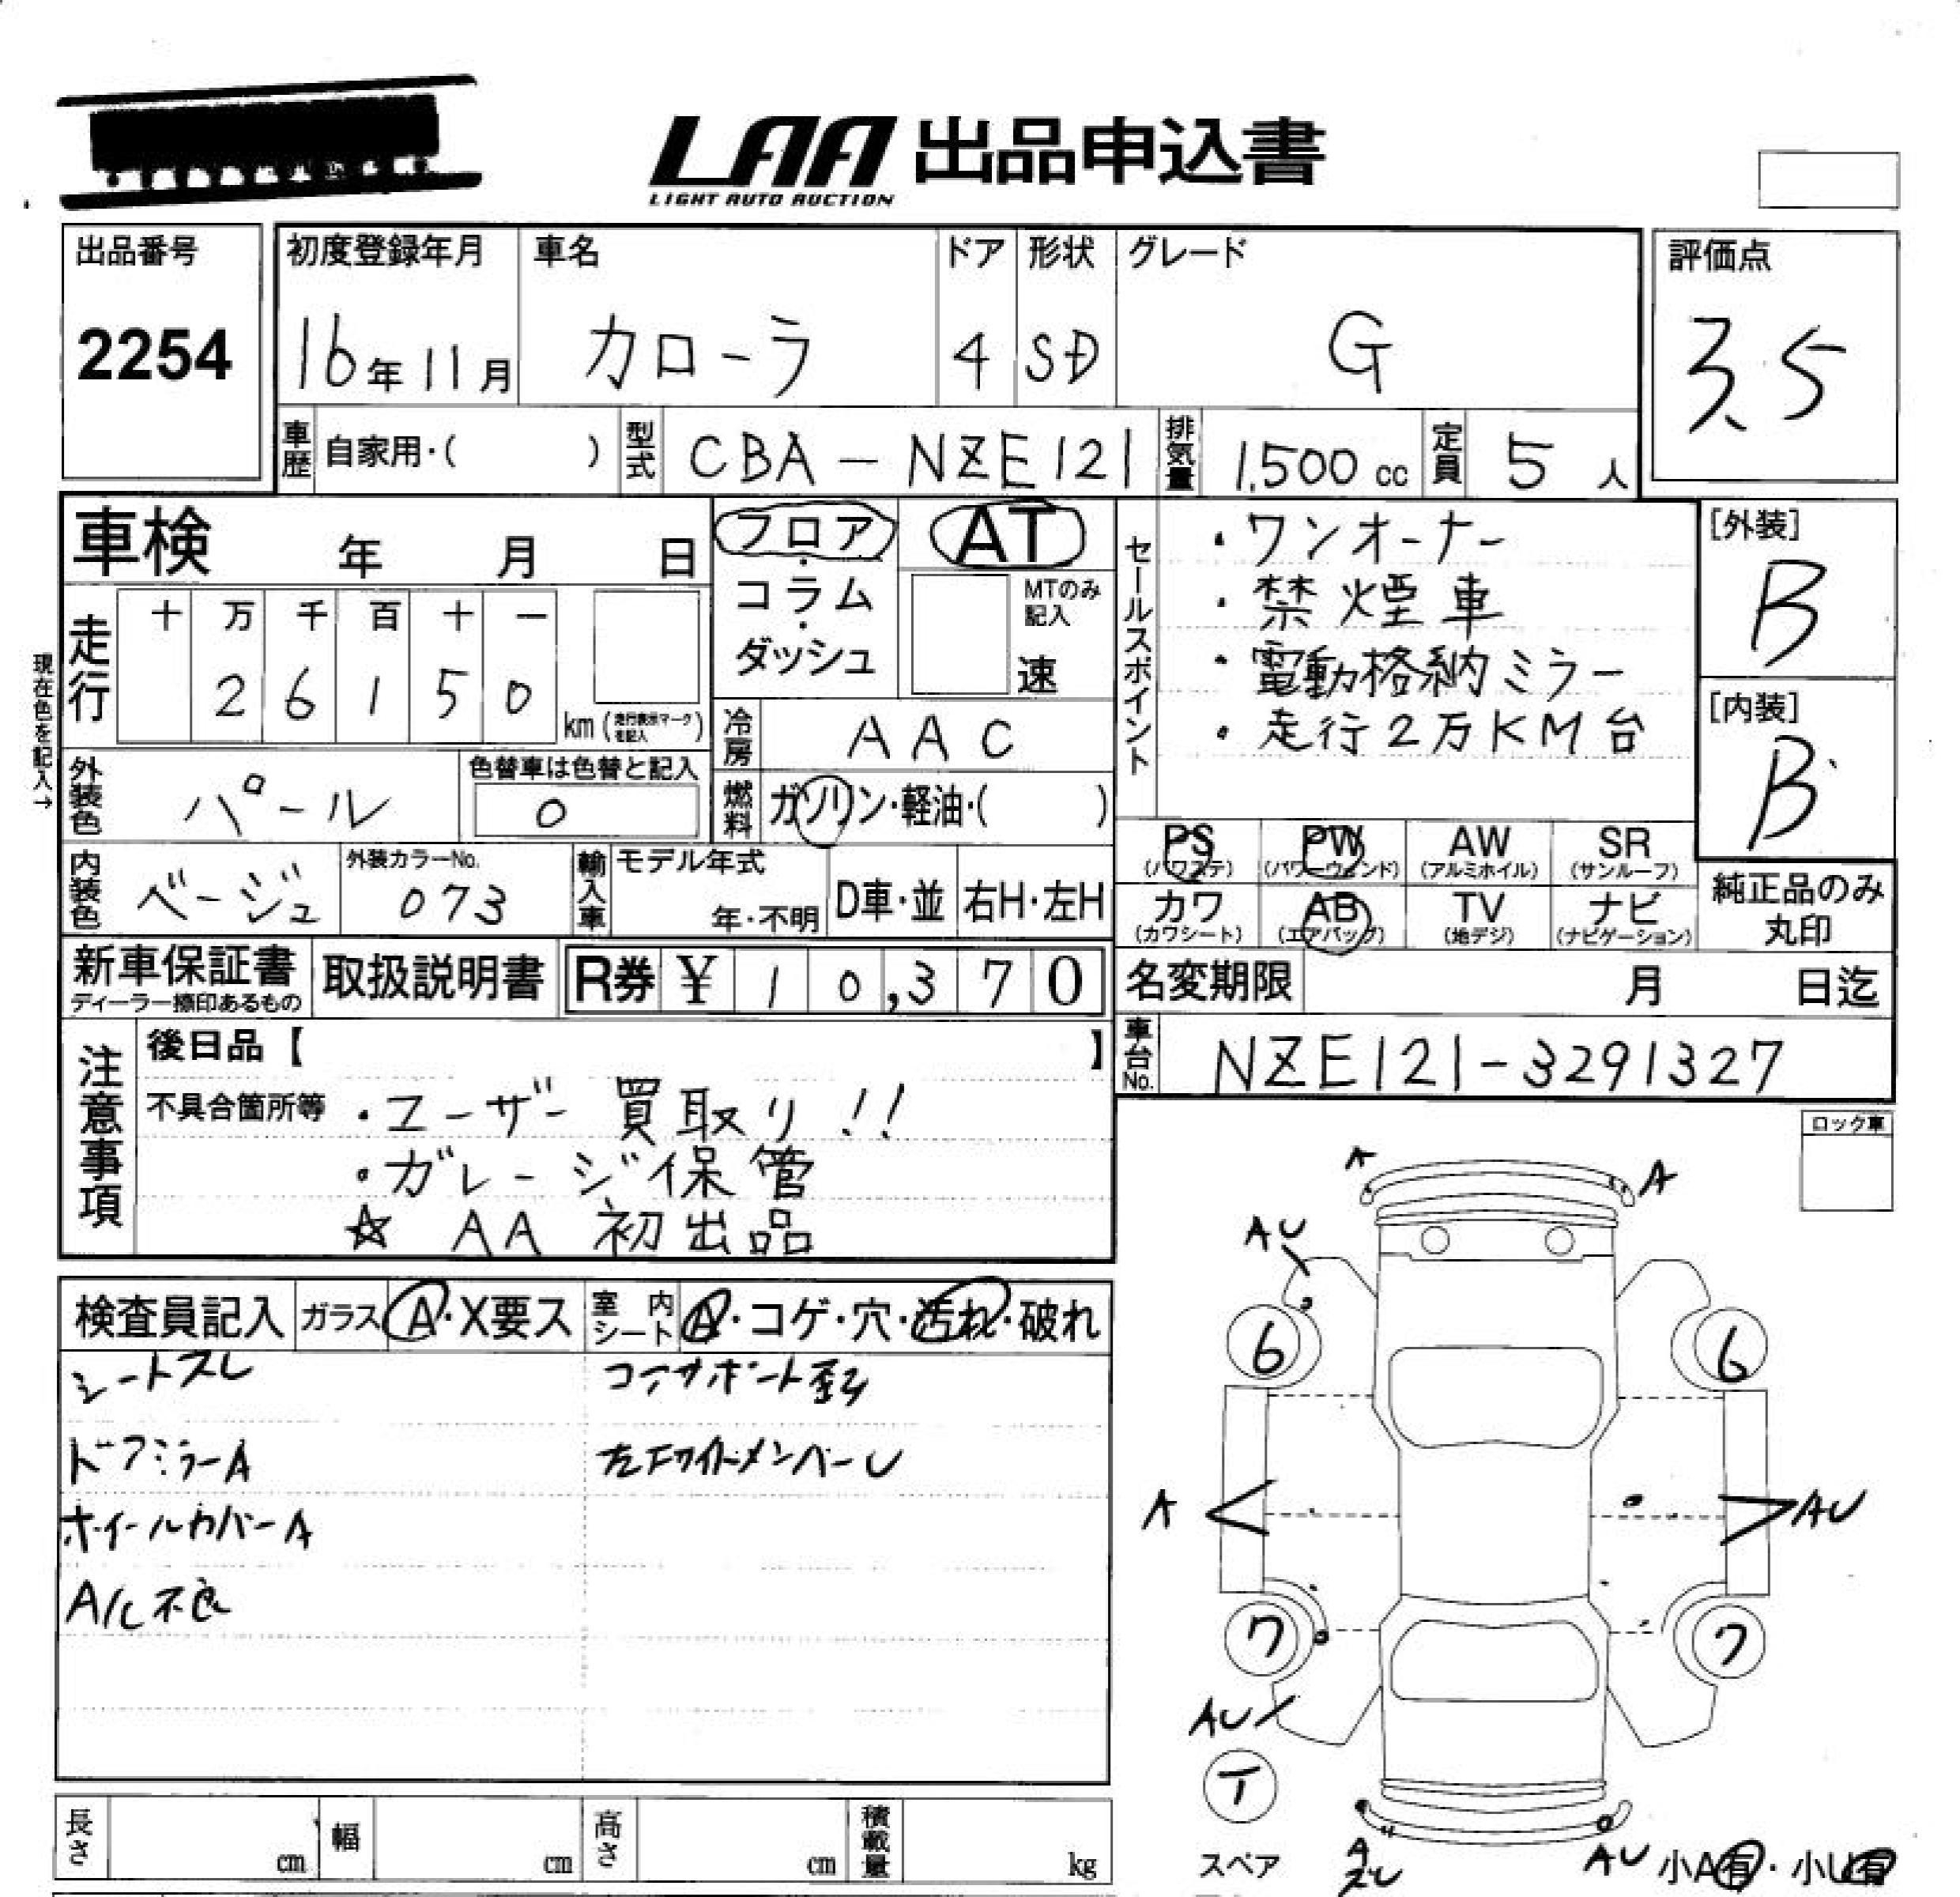 LAA 出品申込書
LIGHT AUTO AUCTION
出品番号
2254
初度登録年月 車名 ドア 形状 グレード
16年11月 カローラ 4 SD G
評価点
3.5
車歴 自家用・( ) 型式 CBA-NZE121 排気量 1,500cc 定員 5人
車検 年 月 日
フロア・コラム・ダッシュ
AT
MTのみ記入
速
セールスポイント
・ワンオーナー
・禁煙車
・電動格納ミラー
・走行2万KM台
[外装]
B
[内装]
B
現在色を記入→
走行 十 万 千 百 十 一
2 6 1 5 0
km (走行表示マークを記入)
冷房 AAC
外装色 パール 色替車は色替と記入 0
燃料 ガソリン・軽油・( )
PS (パワステ) PW (パワーウィンド) AW (アルミホイル) SR (サンルーフ)
カワ (カワシート) AB (エアバッグ) TV (地デジ) ナビ (ナビゲーション)
純正品のみ丸印
内装色 ベージュ 外装カラーNo. 073 輸入車 モデル年式 年・不明 D車・並 右H・左H
新車保証書 ディーラー捺印あるもの 取扱説明書 R券 ¥ 10,370
名変期限 月 日迄
車台No. NZE121-3291327
注意事項
後日品【 】
不具合箇所等 ・ユーザー買取り!!
・ガレージ保管
☆ AA 初出品
ロック車
検査員記入 ガラス A・X要ス 室内シート A・コゲ・穴・汚れ・破れ
シートスレ
コアサポート
ドアミラーA
メンバーU
ホイールカバーA
A/C不良
A A
AU
6 6
A AU
7 7
AU
T
スペア A AU 小A有・小U有
長さ cm 幅 cm 高さ cm 積載量 kg